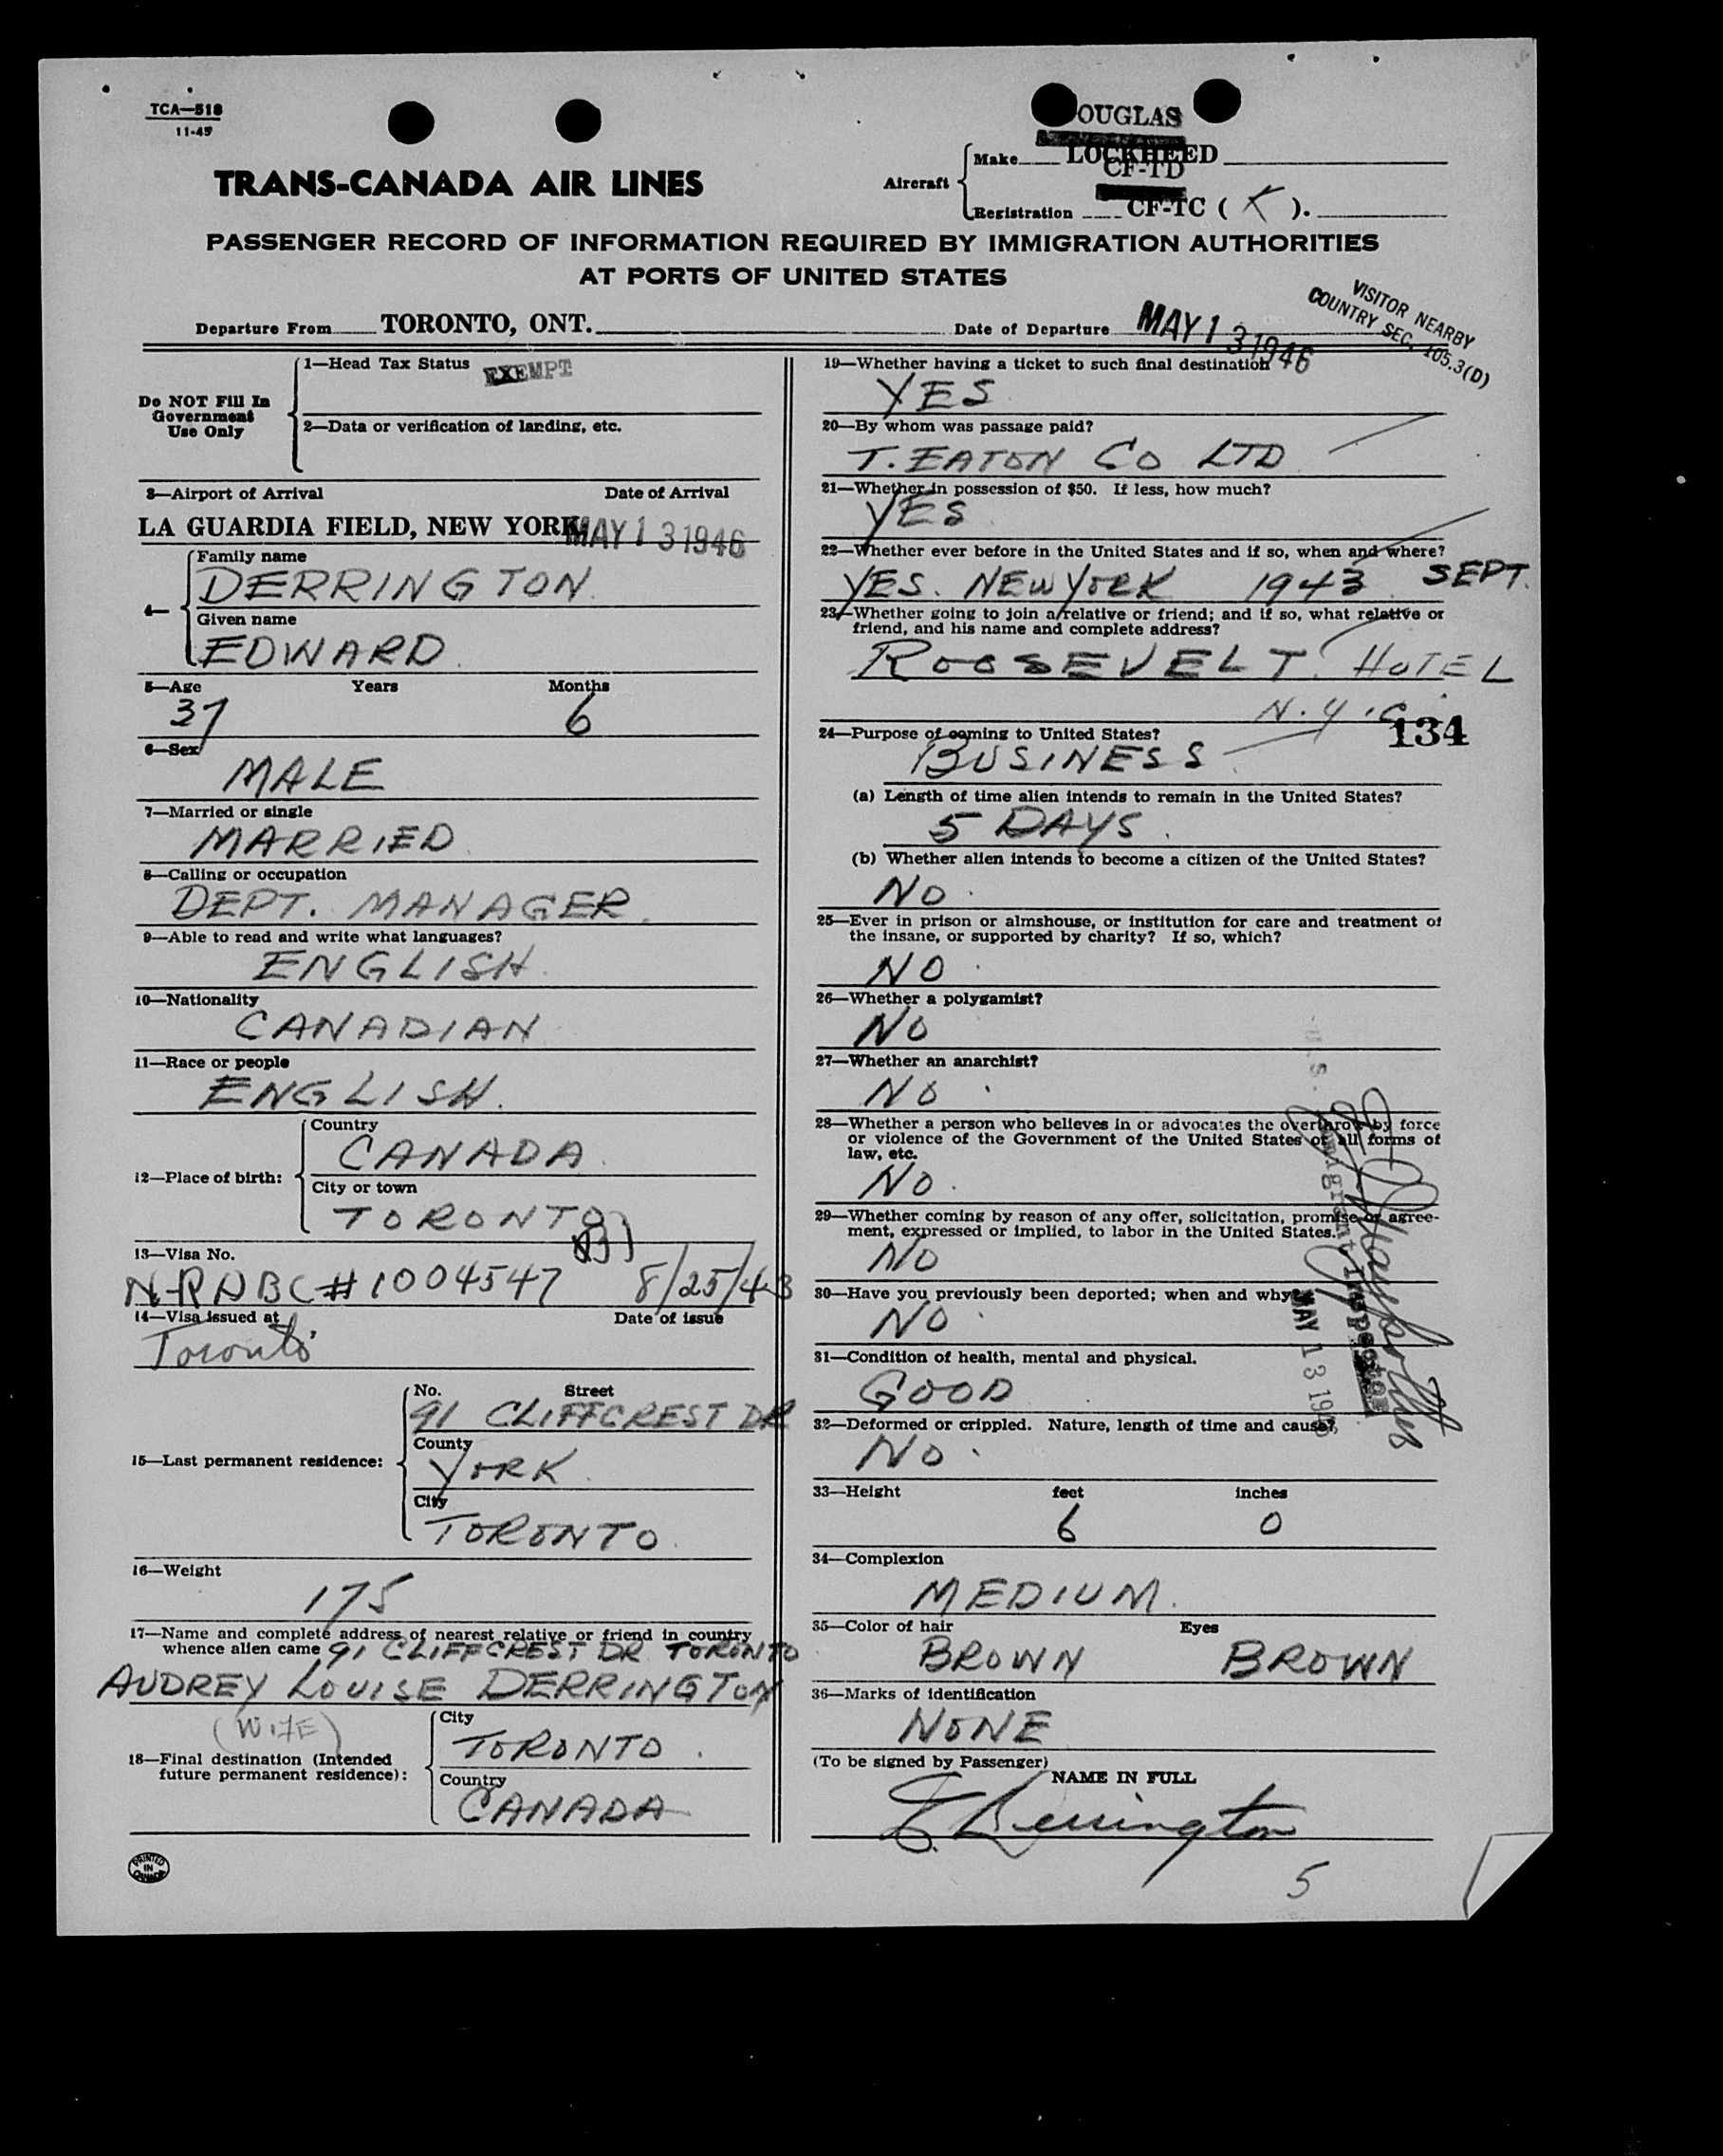 TCA—518
11-45
TRANS-CANADA AIR LINES
OUGLAS
Aircraft
Make LOCKHEED
CF-TD
Registration CF-TC ( K ).
PASSENGER RECORD OF INFORMATION REQUIRED BY IMMIGRATION AUTHORITIES
AT PORTS OF UNITED STATES
VISITOR NEARBY
COUNTRY SEC. 105.3(D)
Departure From TORONTO, ONT. Date of Departure MAY 13 1946
Do NOT Fill In
Government
Use Only
1—Head Tax Status EXEMPT
2—Data or verification of landing, etc.
3—Airport of Arrival Date of Arrival
LA GUARDIA FIELD, NEW YORK MAY 13 1946
4—
Family name
DERRINGTON
Given name
EDWARD
5—Age Years Months
37 6
6—Sex
MALE
7—Married or single
MARRIED
8—Calling or occupation
DEPT. MANAGER.
9—Able to read and write what languages?
ENGLISH.
10—Nationality
CANADIAN
11—Race or people
ENGLISH.
12—Place of birth:
Country
CANADA.
City or town
TORONTO
13—Visa No.
N-RNBC# 1004547 8/25/43
14—Visa issued at Date of issue
Toronto
15—Last permanent residence:
No. Street
91 CLIFFCREST DR
County
YORK.
City
TORONTO.
16—Weight
175
17—Name and complete address of nearest relative or friend in country
whence alien came 91 CLIFFCREST DR TORONTO
AUDREY LOUISE DERRINGTON
(WIFE)
18—Final destination (Intended
future permanent residence):
City
TORONTO.
Country
CANADA
PRINTED
IN
CANADA
19—Whether having a ticket to such final destination
YES
20—By whom was passage paid?
T. EATON CO LTD
21—Whether in possession of $50. If less, how much?
YES
22—Whether ever before in the United States and if so, when and where?
YES. NEW YORK 1943 SEPT.
23—Whether going to join a relative or friend; and if so, what relative or
friend, and his name and complete address?
ROOSEVELT. HOTEL
N.Y.C.
134
24—Purpose of coming to United States?
BUSINESS
(a) Length of time alien intends to remain in the United States?
5 DAYS.
(b) Whether alien intends to become a citizen of the United States?
NO.
25—Ever in prison or almshouse, or institution for care and treatment of
the insane, or supported by charity? If so, which?
NO.
26—Whether a polygamist?
NO
27—Whether an anarchist?
NO.
28—Whether a person who believes in or advocates the overthrow by force
or violence of the Government of the United States or all forms of
law, etc.
NO.
29—Whether coming by reason of any offer, solicitation, promise or agree-
ment, expressed or implied, to labor in the United States.
NO
30—Have you previously been deported; when and why?
NO.
31—Condition of health, mental and physical.
GOOD.
32—Deformed or crippled. Nature, length of time and cause?
NO.
U.S. Immigrant Inspector
MAY 13 1946
33—Height feet inches
6 0
34—Complexion
MEDIUM.
35—Color of hair Eyes
BROWN BROWN
36—Marks of identification
NONE
(To be signed by Passenger)
NAME IN FULL
E Derrington
5